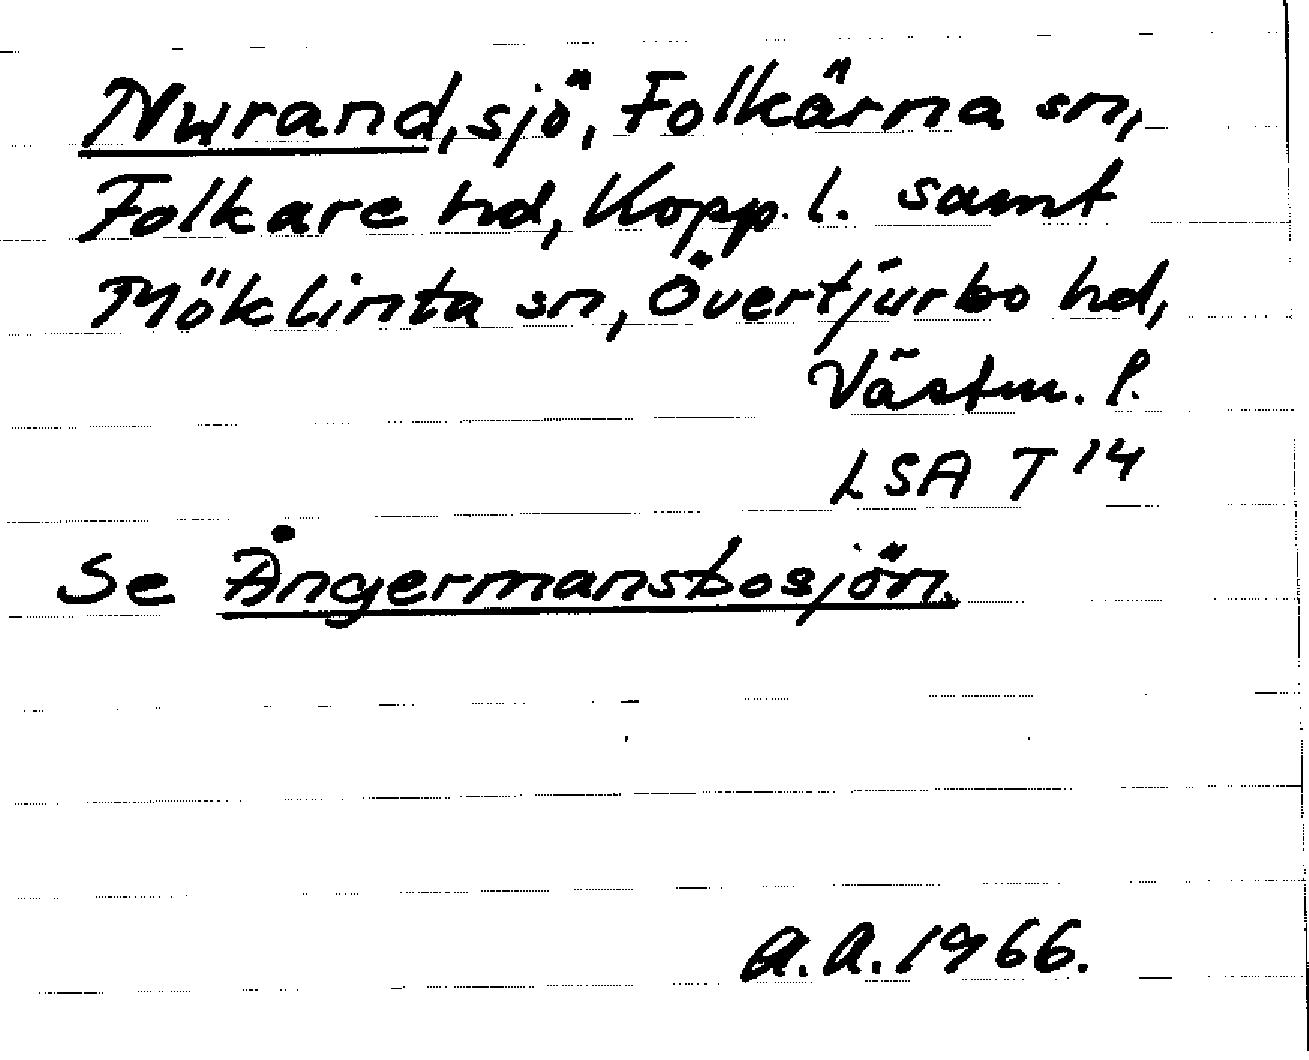 Nurand, sjö, Folkärna sn,
Folkare hd, Kopp. l. samt
Möklinta sn, Övertjurbo hd,
Västm. l.
LSA T 14
Se Ångermansbosjön.
A.A. 1966.